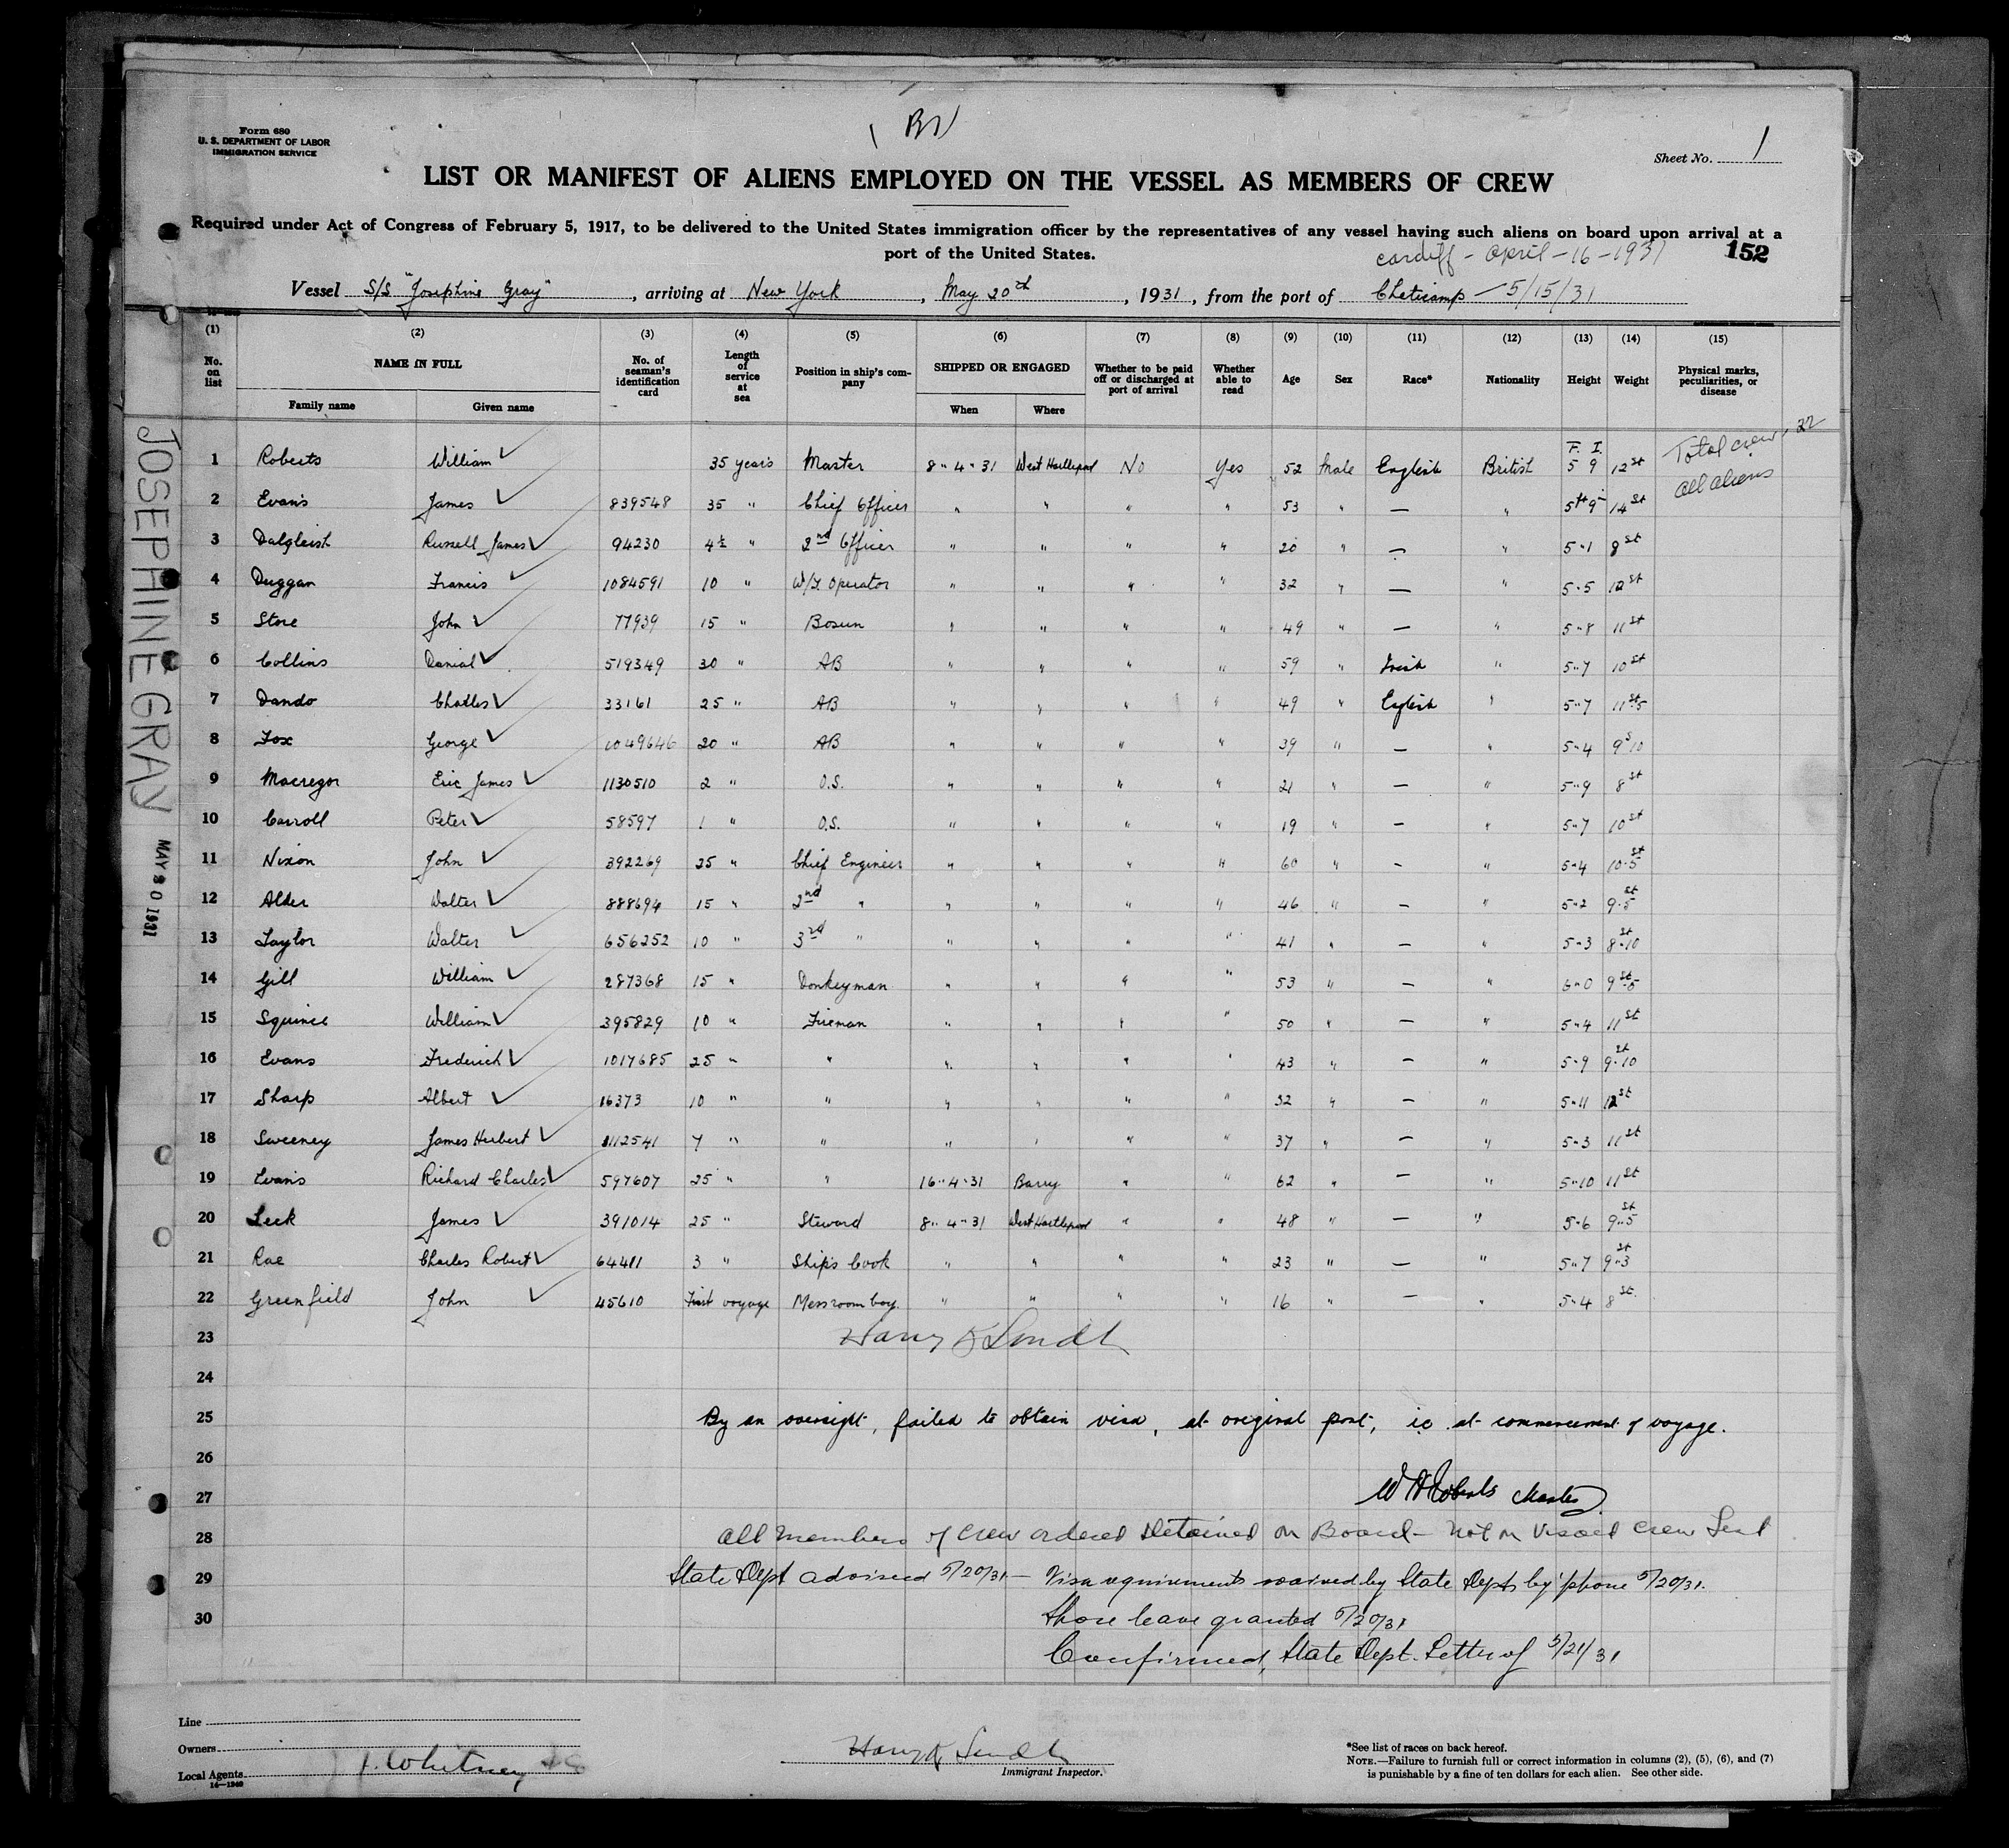 Form 680
U. S. DEPARTMENT OF LABOR
IMMIGRATION SERVICE
Sheet No. 1
LIST OR MANIFEST OF ALIENS EMPLOYED ON THE VESSEL AS MEMBERS OF CREW
Required under Act of Congress of February 5, 1917, to be delivered to the United States immigration officer by the representatives of any vessel having such aliens on board upon arrival at a
port of the United States.
Cardiff - April - 16 - 1931
152
Vessel S/S "Josephine Gray", arriving at New York, May 20th, 1931, from the port of Cheticamp - 5/15/31
(1) (2) (3) (4) (5) (6) (7) (8) (9) (10) (11) (12) (13) (14) (15)
No. on list NAME IN FULL No. of seaman's identification card Length of service at sea Position in ship's company SHIPPED OR ENGAGED Whether to be paid off or discharged at port of arrival Whether able to read Age Sex Race* Nationality Height Weight Physical marks, peculiarities, or disease
Family name Given name When Where
JOSEPHINE GRAY
MAY 20 1931
Total crew 22
All aliens
F. I.
1 Roberts William 35 years Master 8-4-31 West Hartlepool No Yes 52 Male English British 5 9 12st
2 Evans James 839548 35 " Chief Officer " " " " 53 " — " 5ft 9in 14st
3 Dalgleish Russell James 94230 4½ " 2nd Officer " " " " 20 " — " 5-1 8st
4 Duggan Francis 1084591 10 " W/T. Operator " " " " 32 " — " 5-5 12st
5 Stone John 77939 15 " Bosun " " " " 49 " — " 5-8 11st
6 Collins Danial 519349 30 " AB " " " " 59 " Irish " 5-7 10st
7 Dando Charles 33161 25 " AB " " " " 49 " English " 5-7 11st-5
8 Fox George 1049646 20 " AB " " " " 39 " — " 5-4 9s10
9 Macregor Eric James 1130510 2 " O.S. " " " " 21 " — " 5-9 8st
10 Carroll Peter 58597 1 " O.S. " " " " 19 " — " 5-7 10st
11 Nixon John 392269 25 " Chief Engineer " " " " 60 " — " 5-4 10-5st
12 Alder Walter 888694 15 " 2nd " " " " " 46 " — " 5-2 9-5st
13 Taylor Walter 656252 10 " 3rd " " " " " 41 " — " 5-3 8-10st
14 Gill William 287368 15 " Donkeyman " " " " 53 " — " 6-0 9st-5
15 Squince William 395829 10 " Fireman " " " " 50 " — " 5-4 11st
16 Evans Frederick 1017685 25 " " " " " " 43 " — " 5-9 9-10st
17 Sharp Albert 16373 10 " " " " " " 32 " — " 5-11 12st
18 Sweeney James Herbert 1112541 7 " " " " " " 37 " — " 5-3 11st
19 Evans Richard Charles 597607 25 " " 16-4-31 Barry " " 62 " — " 5-10 11st
20 Leck James 391014 25 " Steward 8-4-31 West Hartlepool " " 48 " — " 5-6 9-5st
21 Rae Charles Robert 64411 3 " Ship's Cook " " " " 23 " — " 5-7 9-3st
22 Greenfield John 45610 First voyage Messroom boy. " " " " 16 " — " 5-4 8st
23
24
25 By an oversight, failed to obtain visa, at original port, ie at commencement of voyage.
26
27 W H Roberts Master
28 All members of crew ordered detained on Board - not on visaed crew list
29 State Dept advised 5/20/31 - Visa requirements waived by State Dept by 'phone 5/20/31.
30 Shore leave granted 5/20/31
Confirmed, State Dept. Letter of 5/21/31
Line
Owners
Local Agents J. Whitney
14—1240
Immigrant Inspector.
*See list of races on back hereof.
NOTE.—Failure to furnish full or correct information in columns (2), (5), (6), and (7)
is punishable by a fine of ten dollars for each alien. See other side.